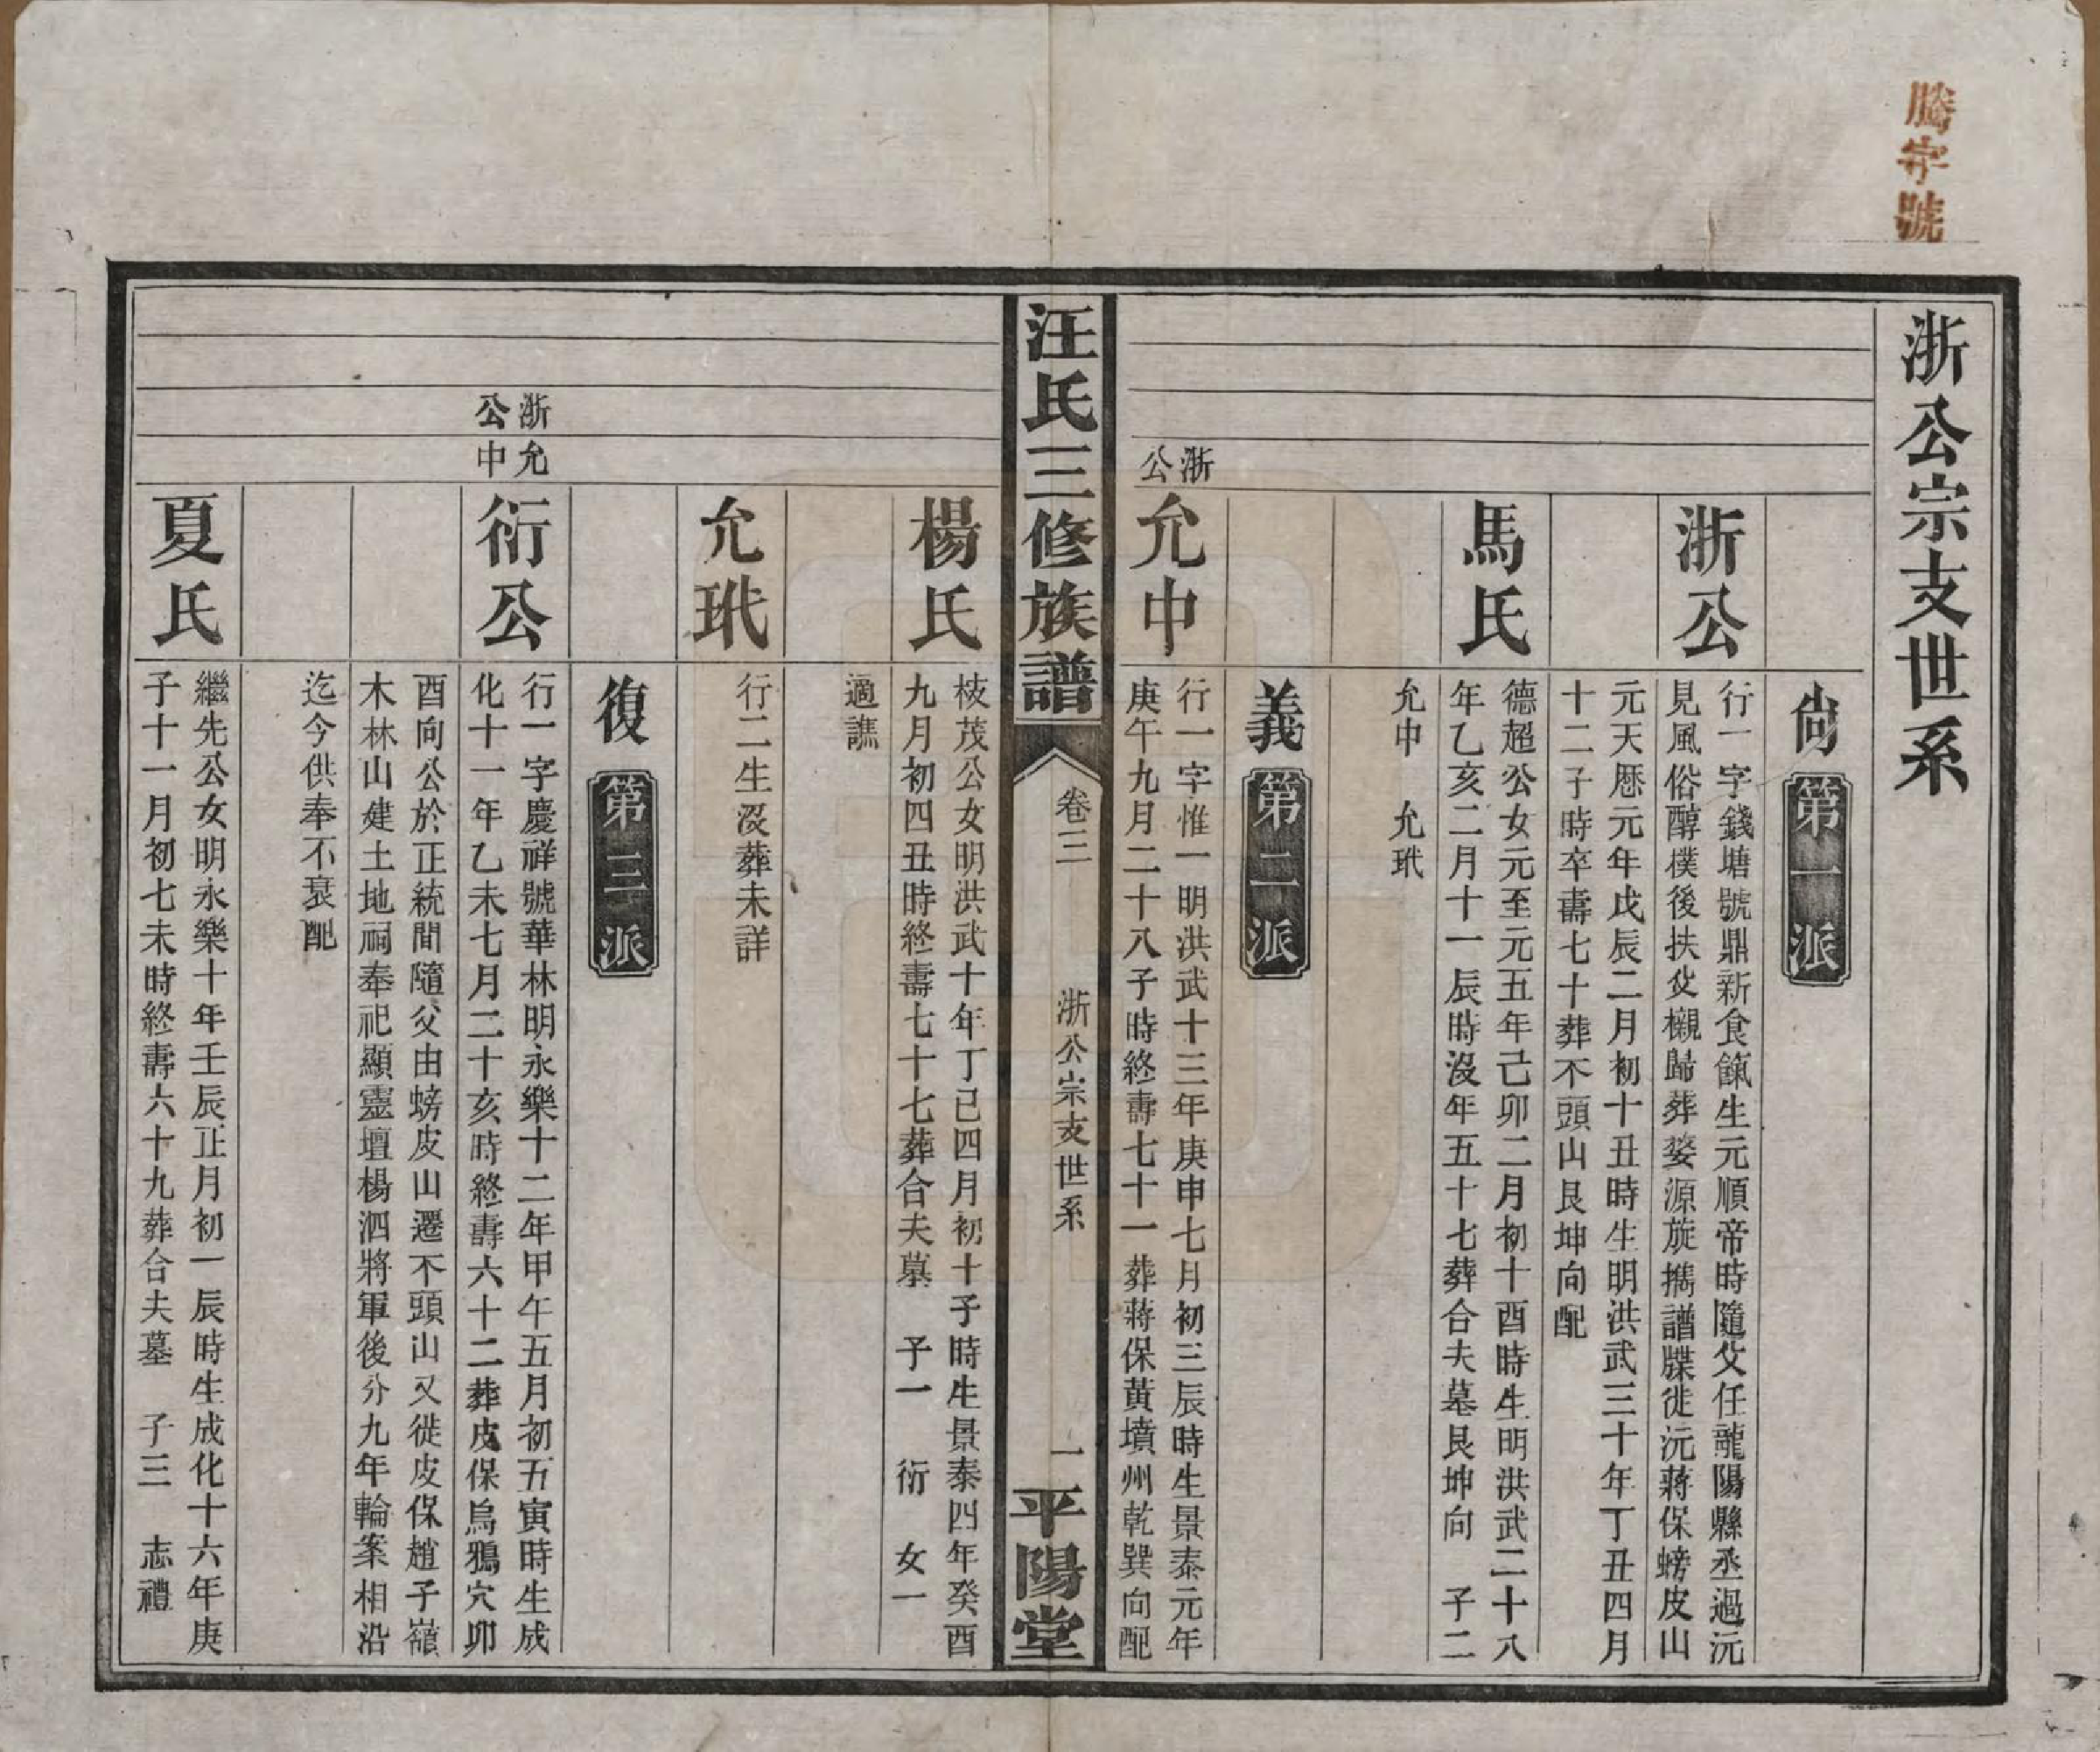 騰字號
浙公宗支世系
尙 第一派
浙公
行一字錢塘號鼎新食餼生元順帝時隨父任龍陽縣丞過沅
見風俗醇樸後扶父櫬歸葬婺源旋攜譜牒徙沅蔣保螃皮山
元天曆元年戊辰二月初十丑時生明洪武三十年丁丑四月
十二子時卒壽七十葬不頭山艮坤向配
馬氏
德超公女元至元五年己卯二月初十酉時生明洪武二十八
年乙亥二月十一辰時沒年五十七葬合夫墓艮坤向 子二
允中 允玳
義 第二派
浙公
允中
行一字惟一明洪武十三年庚申七月初三辰時生景泰元年
庚午九月二十八子時終壽七十一葬蔣保黃墳州乾巽向配
汪氏三修族譜
卷三
浙公宗支世系
一
平陽堂
楊氏
枝茂公女明洪武十年丁巳四月初十子時生景泰四年癸酉
九月初四丑時終壽七十七葬合夫墓 子一 衍 女一
適譙
允玳
行二生沒葬未詳
復 第三派
浙公
允中
衍公
行一字慶祥號華林明永樂十二年甲午五月初五寅時生成
化十一年乙未七月二十亥時終壽六十二葬皮保烏鴉穴卯
酉向公於正統間隨父由螃皮山遷不頭山又徙皮保趙子嶺
木林山建土地祠奉祀顯靈壇楊泗將軍後分九年輪案相沿
迄今供奉不衰配
夏氏
繼先公女明永樂十年壬辰正月初一辰時生成化十六年庚
子十一月初七未時終壽六十九葬合夫墓 子三 志禮